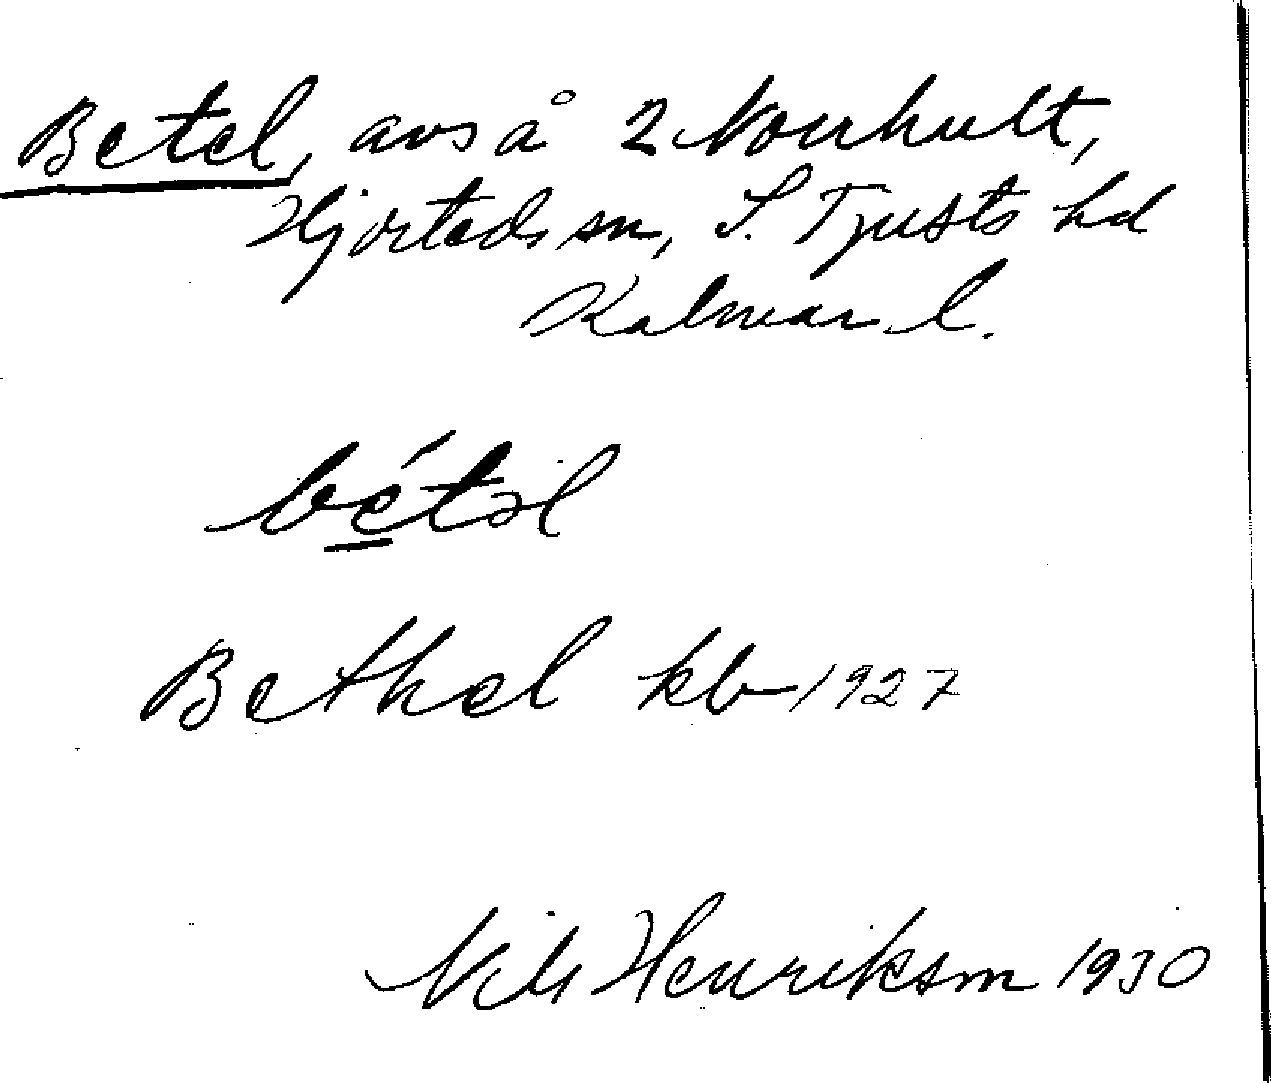 Betel, avs å 2 Norrhult,
Hjorteds sn, S. Tjusts hd
Kalmar l.
bétəl
Bethel kb 1927
Nils Henrikson 1930